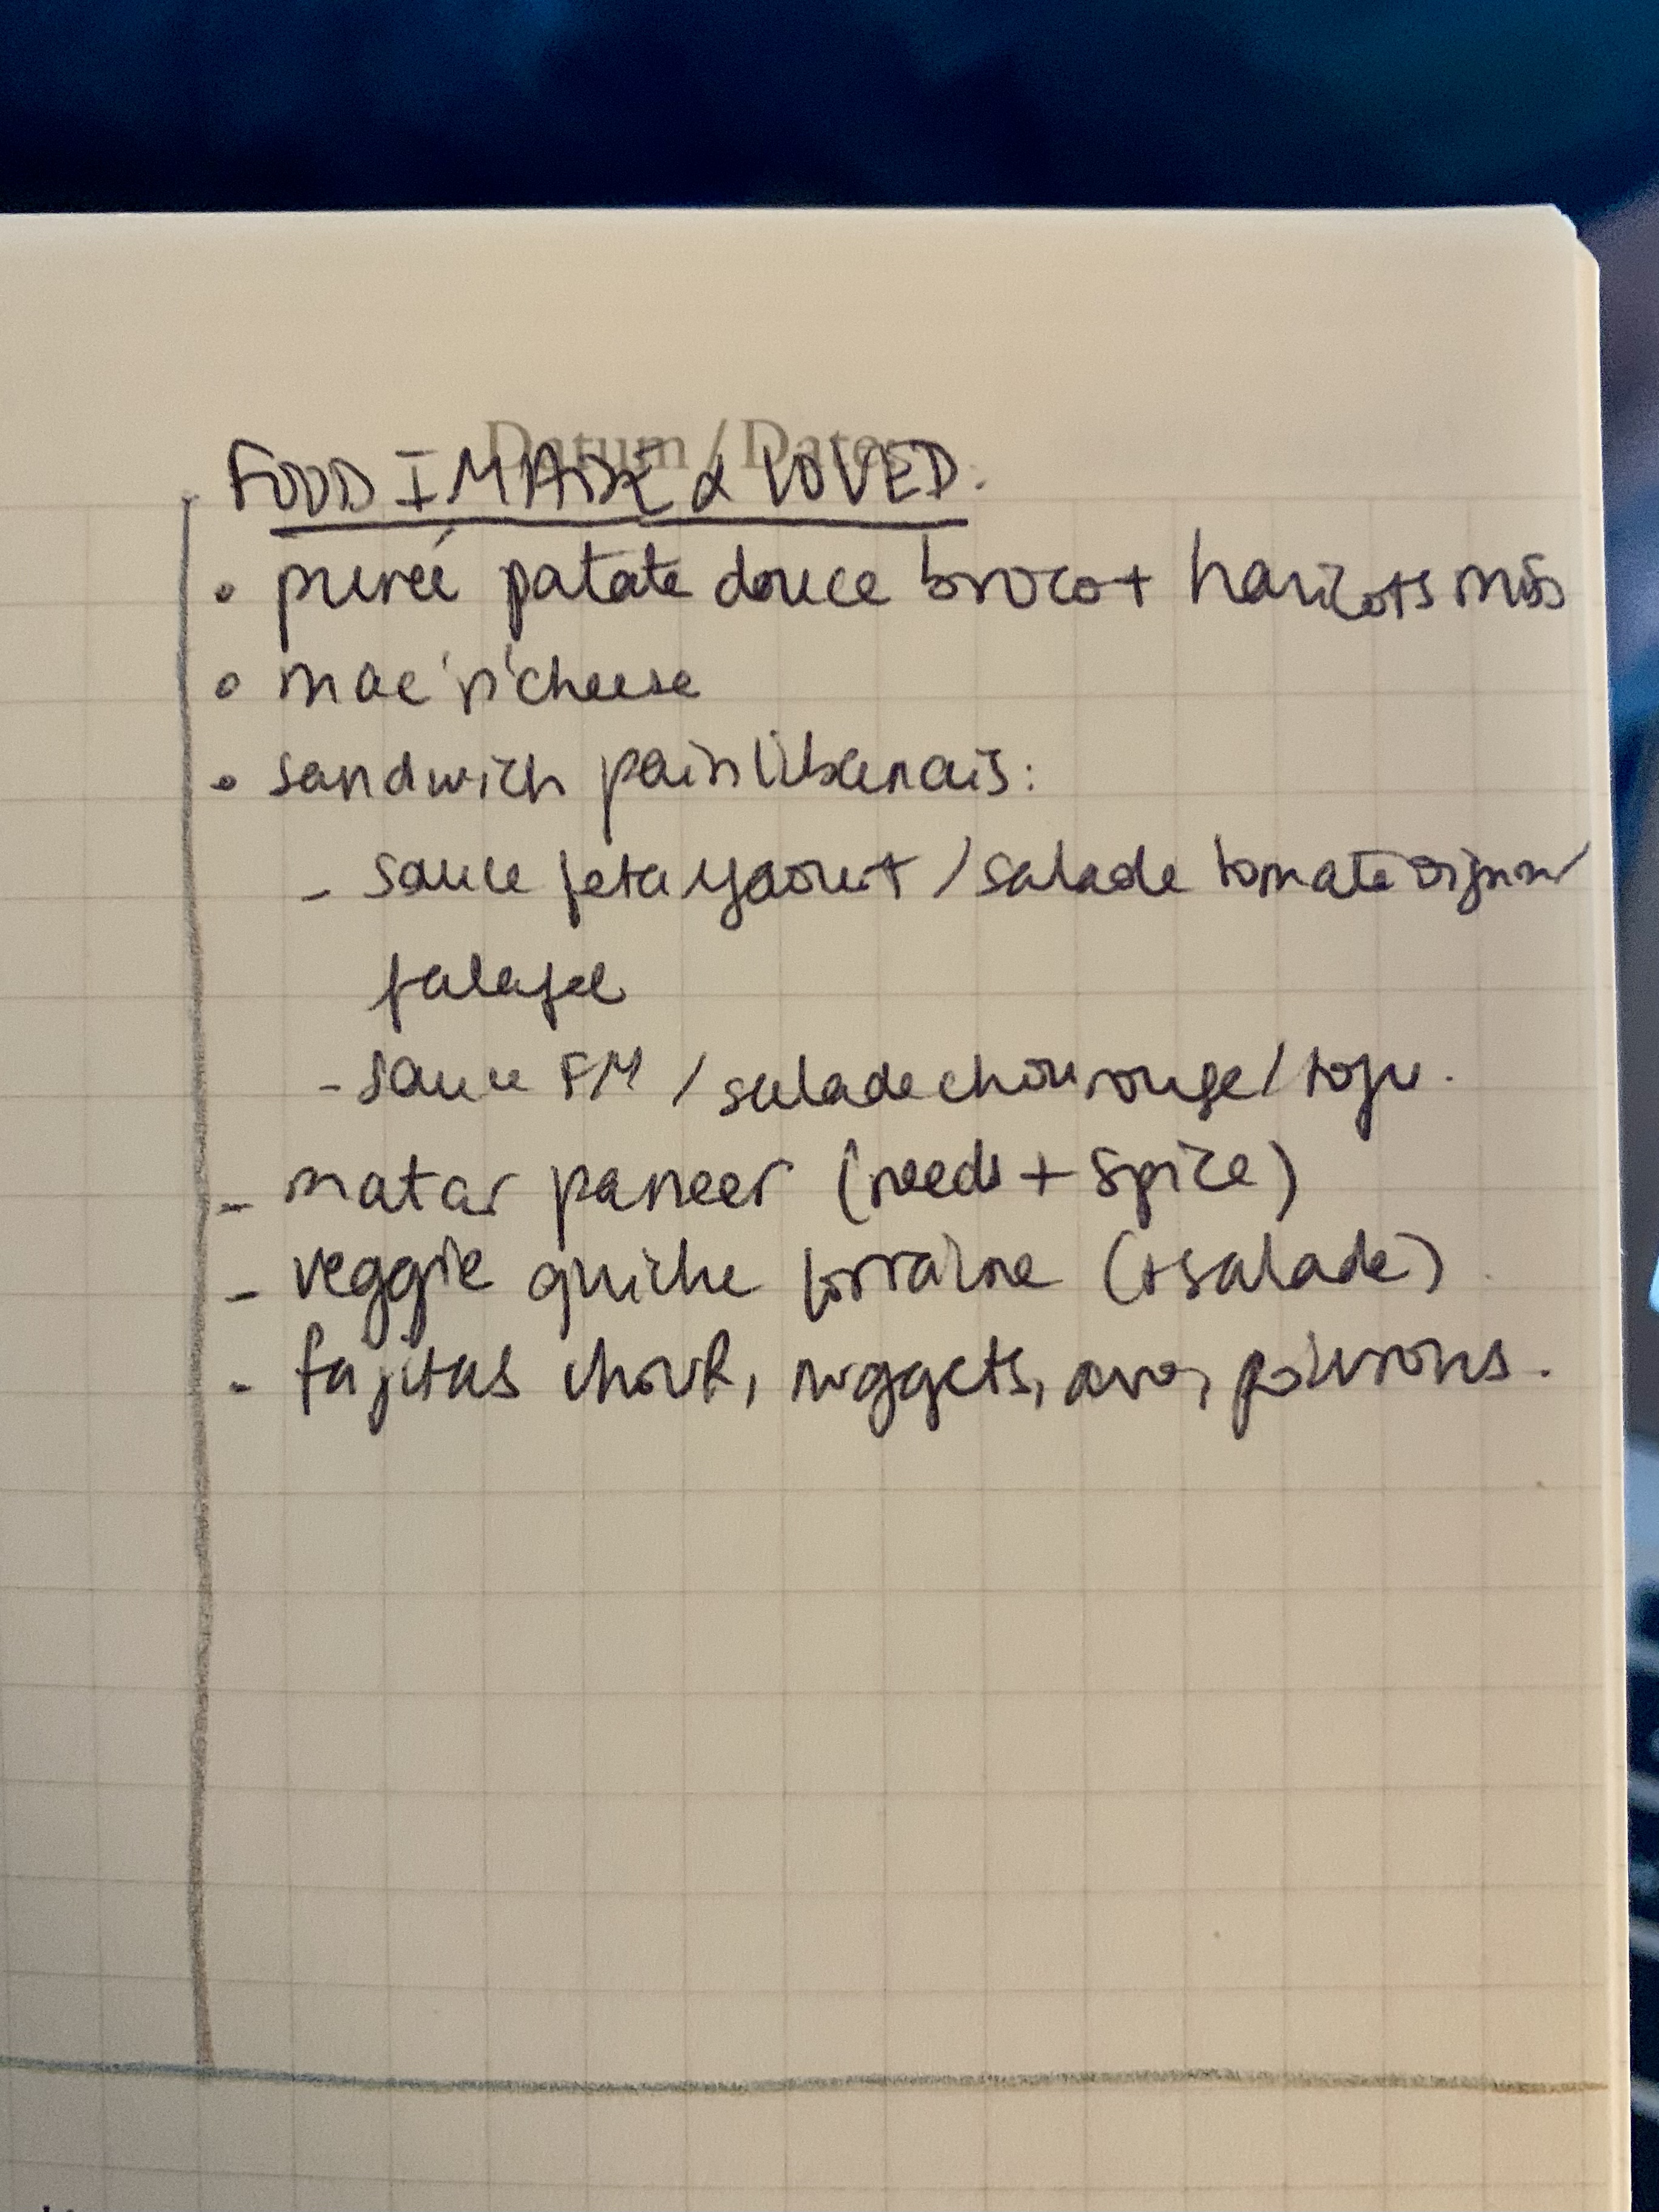 Datum / Date:
FOOD I MADE & LOVED.
• purée patate douce broco + haricots
• mac 'n' cheese
• sandwich pain libanais:
- sauce feta yaourt / salade tomate oignon
falafel
- sauce FM / salade chou rouge / tofu.
- matar paneer (needs + spice)
- veggie quiche lorraine (+ salade)
- fajitas chouR, nuggets, avo, poivrons.